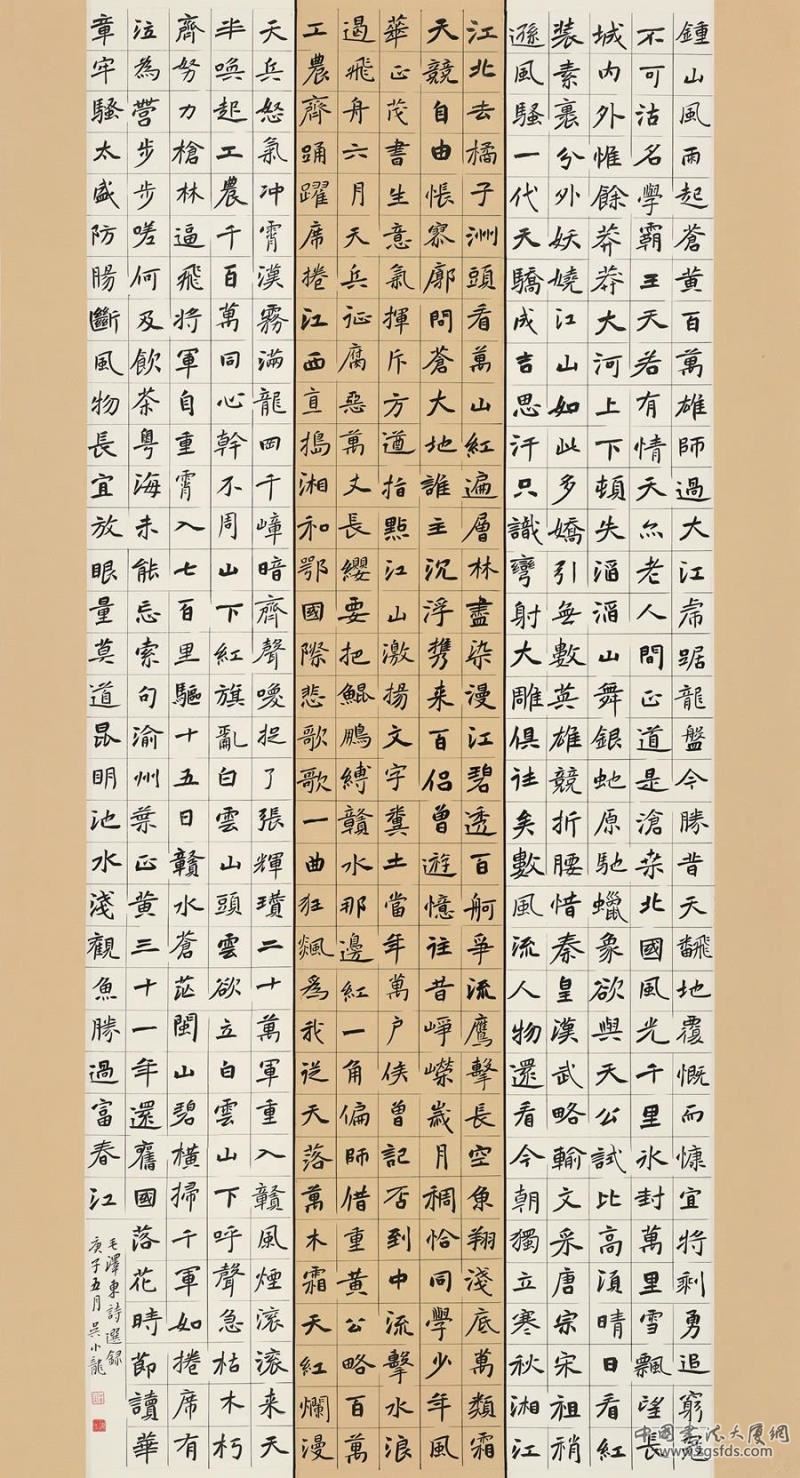 鍾山風雨起蒼黃百萬雄師過大江虎踞龍盤今勝昔天翻地覆慨而慷宜將剩勇追窮寇
不可沽名學霸王天若有情天亦老人間正道是滄桑北國風光千里冰封萬里雪飄望長
城內外惟餘莽莽大河上下頓失滔滔山舞銀蛇原馳蠟象欲與天公試比高須晴日看紅
裝素裹分外妖嬈江山如此多嬌引無數英雄競折腰惜秦皇漢武略輸文采唐宗宋祖稍
遜風騷一代天驕成吉思汗只識彎射大雕俱往矣數風流人物還看今朝獨立寒秋湘江
江北去橘子洲頭看萬山紅遍層林盡染漫江碧透百舸爭流鷹擊長空魚翔淺底萬類霜
天競自由悵寥廓問蒼大地誰主沉浮携来百侶曾遊憶往昔崢嶸歲月稠恰同學少年風
華正茂書生意氣揮斥方遒指點江山激揚文字糞土當年萬户侯曾記否到中流擊水浪
遏飛舟六月天兵征腐惡萬丈長纓要把鯤鵬縛贛水那邊紅一角偏師借重黄公略百萬
工農齊踊躍席捲江西直搗湘和鄂國際悲歌歌一曲狂飈為我從天落萬木霜天紅爛漫
天兵怒氣冲霄漢霧滿龍岡千嶂暗齊聲喚捉了張輝瓚二十萬軍重入贛風煙滾滾来天
半喚起工農千百萬同心幹不周山下紅旗亂白雲山頭雲欲立白雲山下呼聲急枯木朽
齊努力槍林逼飛將軍自重霄入七百里驅十五日贛水蒼茫閩山碧橫掃千軍如捲席有
泣為營步步嗟何及飲茶粵海未能忘索句渝州葉正黃三十一年還舊國落花時節讀華
章牢騷太盛防腸斷風物長宜放眼量莫道昆明池水淺觀魚勝過富春江
毛澤東詩選録
庚子五月吳小龍
中國書法大廈網
www.zgsfds.com